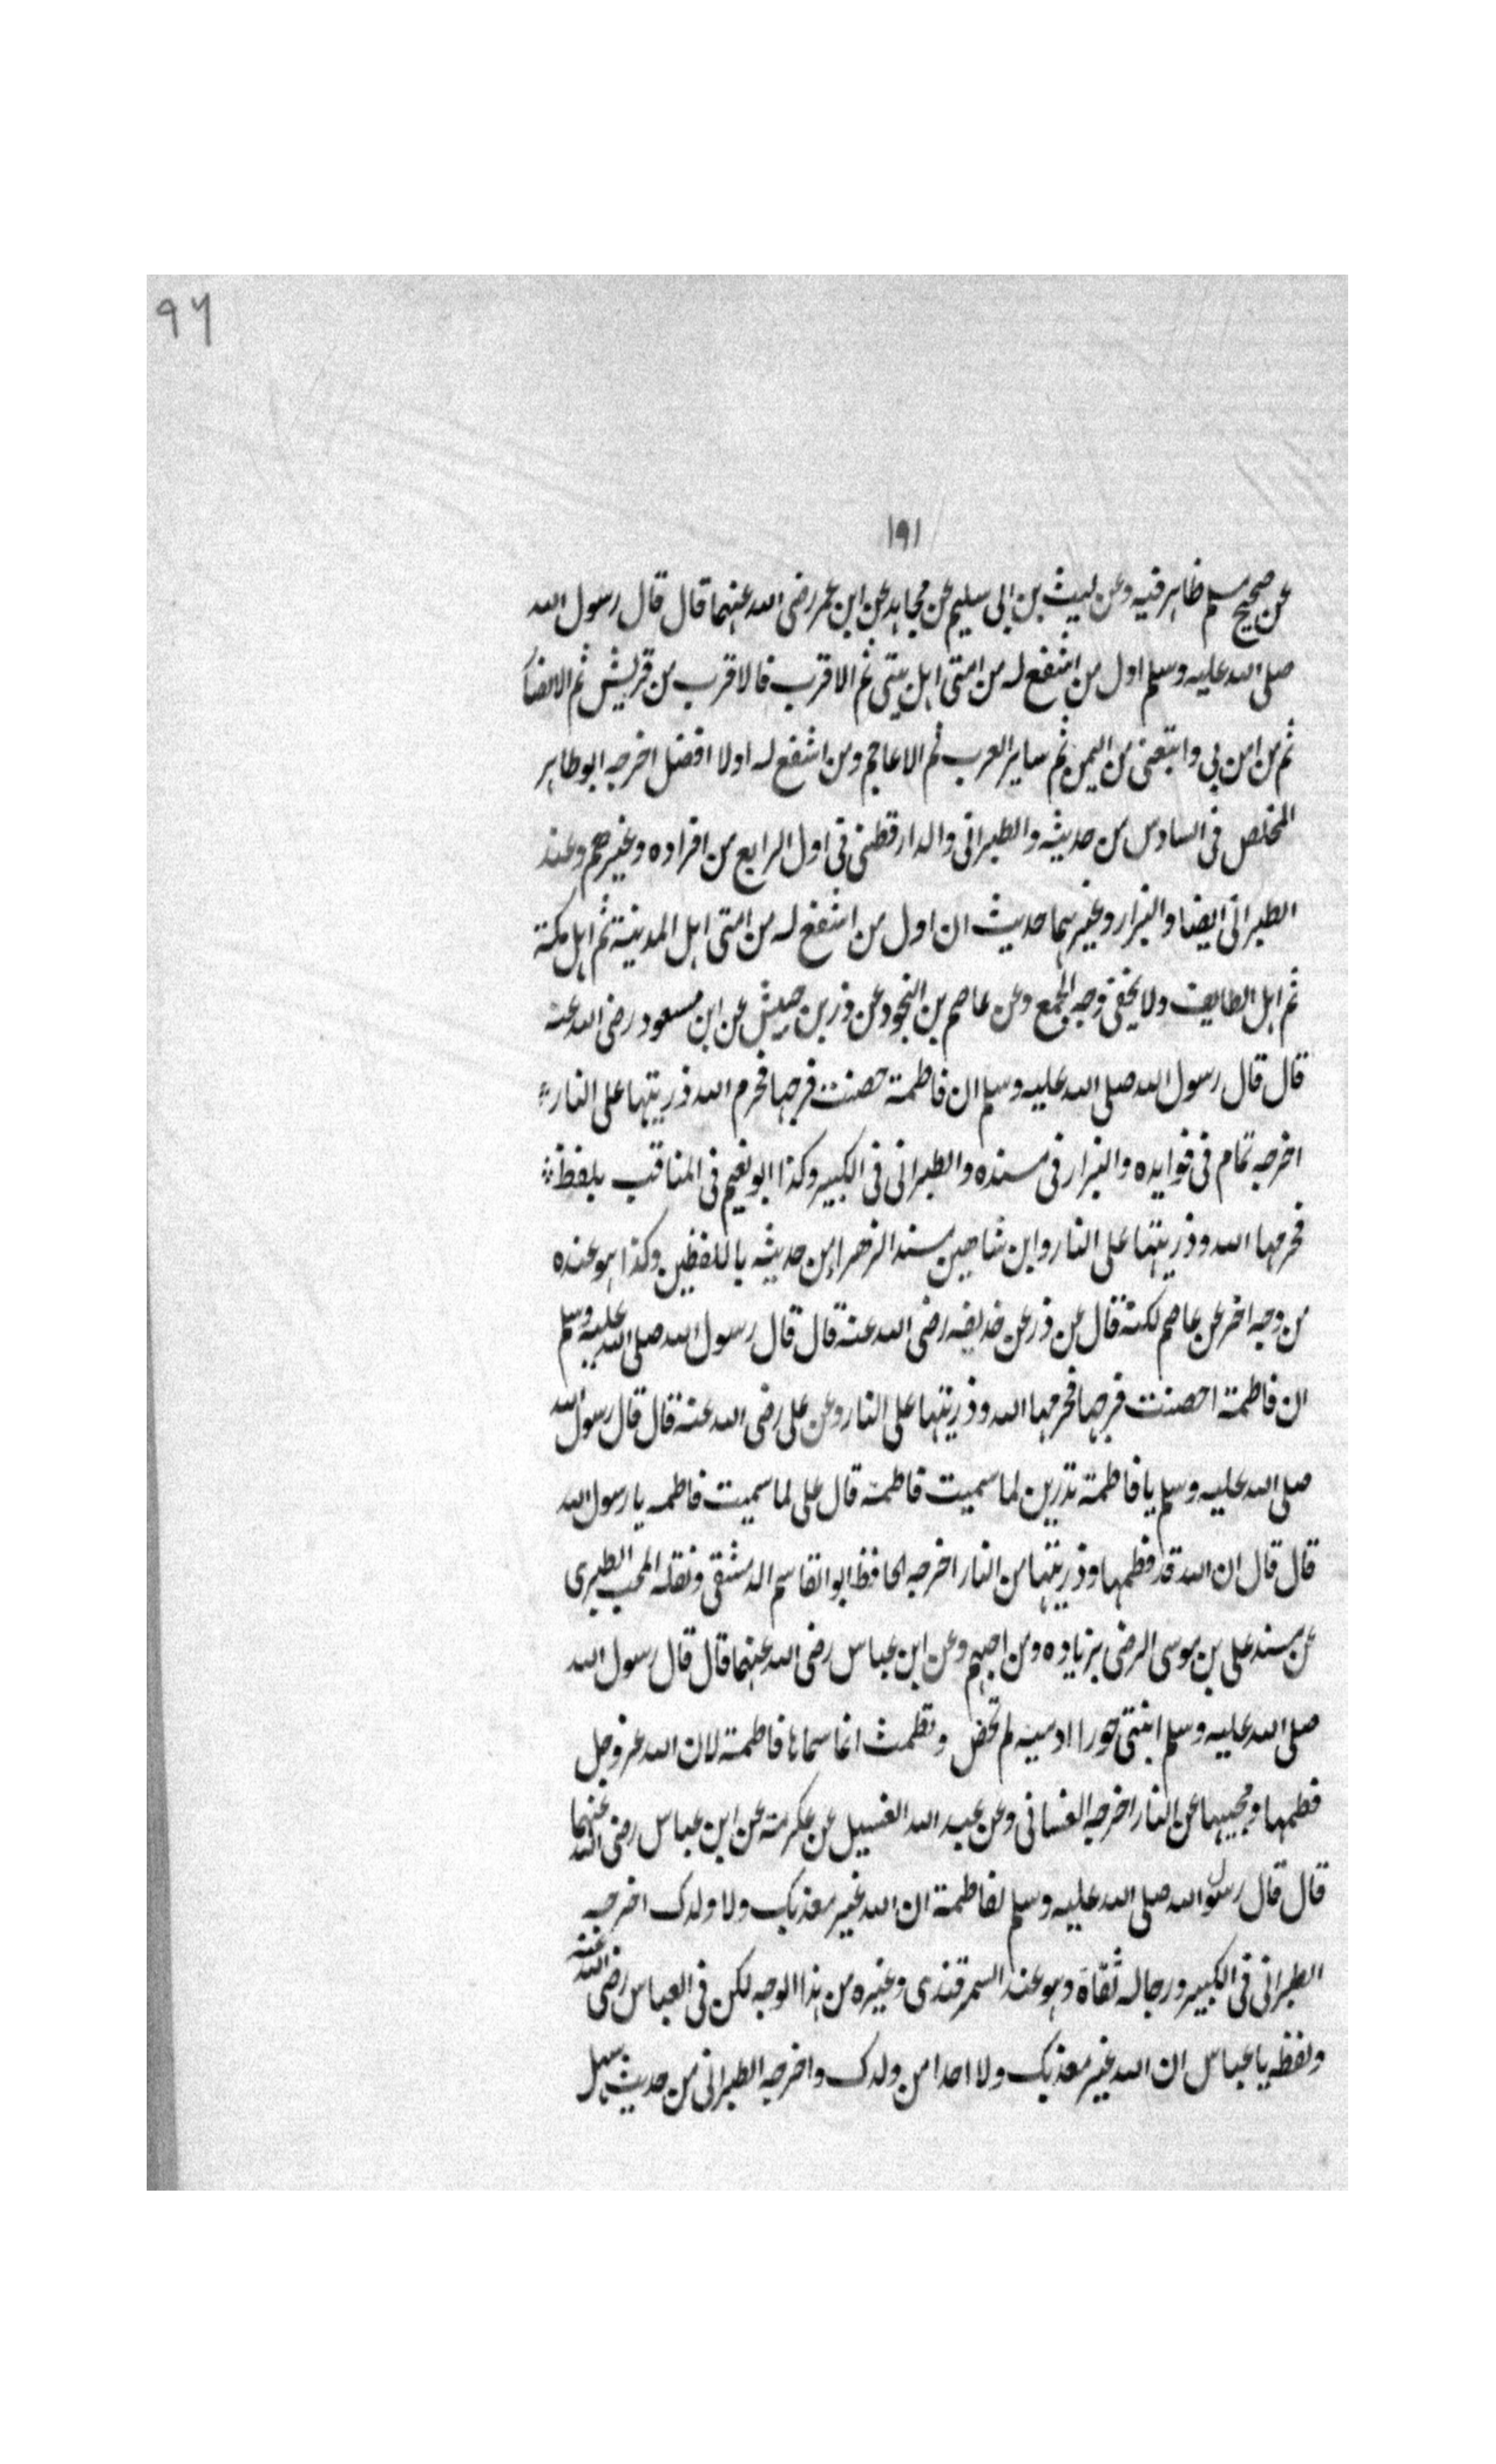 ٩٦
١٩١
عن صحيح مسلم ظاهر فيه وعن ليث بن ابى سليم عن مجاهد عن ابن عمر رضى الله عنهما قال قال رسول الله
صلى الله عليه وسلم اول من اشفع له من امتى اهل بيتى ثم الاقرب فالاقرب من قريش ثم الانصار
ثم من امن بي واتبعنى من اليمن ثم ساير العرب ثم الاعاجم ومن اشفع له اولا افضل اخرجه ابو طاهر
المخلص فى السادس من حديثه والطبرانى والدارقطنى فى اول الرابع من افراده وغيرهم وعند
الطبرانى ايضا والبزار وغيرهما حديث ان اول من اشفع له من امتى اهل المدينة ثم اهل مكة
ثم اهل الطايف ولا يخفى وجه الجمع وعن عاصم بن النجود عن ذر بن حبيش عن ابن مسعود رضى الله عنه
قال قال رسول الله صلى الله عليه وسلم ان فاطمة حصنت فرجها فحرم الله ذريتها على النار
اخرجه تمام فى فوايده والبزار فى مسنده والطبرانى فى الكبير وكذا ابو نعيم فى المناقب بلفظ
فحرمها الله وذريتها على النار وابن شاهين مسند الزهراء من حديثه باللفظين وكذا هو عنده
من وجه اخر عن عاصم لكنه قال عن ذر عن حذيفه رضى الله عنه قال قال رسول الله صلى الله عليه وسلم
ان فاطمة احصنت فرجها فحرمها الله وذريتها على النار وعن على رضى الله عنه قال قال رسول الله
صلى الله عليه وسلم يا فاطمة تدرين لما سميت فاطمة قال على لما سميت فاطمه يا رسول الله
قال قال ان الله قد فطمها وذريتها من النار اخرجه الحافظ ابو القاسم الدمشقى ونقله المحب الطبرى
عن مسند على بن موسى الرضى بزياده ومن احبهم وعن ابن عباس رضى الله عنهما قال قال رسول الله
صلى الله عليه وسلم ابنتى حورا ادميه لم تحض و تطمث انما سماها فاطمة لان الله عز وجل
فطمها ومحبيها عن النار اخرجه الغسانى وعن عبد الله الغسيل عن عكرمة عن ابن عباس رضى الله عنهما
قال قال رسول الله صلى الله عليه وسلم لفاطمة ان الله غير معذبك ولا ولدك اخرجه
الطبرانى فى الكبير ورجاله ثقاة وهو عند السمرقندى وغيره من هذا الوجه لكن فى العباس رضى الله عنه
ولفظه يا عباس ان الله غير معذبك ولا احدا من ولدك واخرجه الطبرانى من حديث سهل